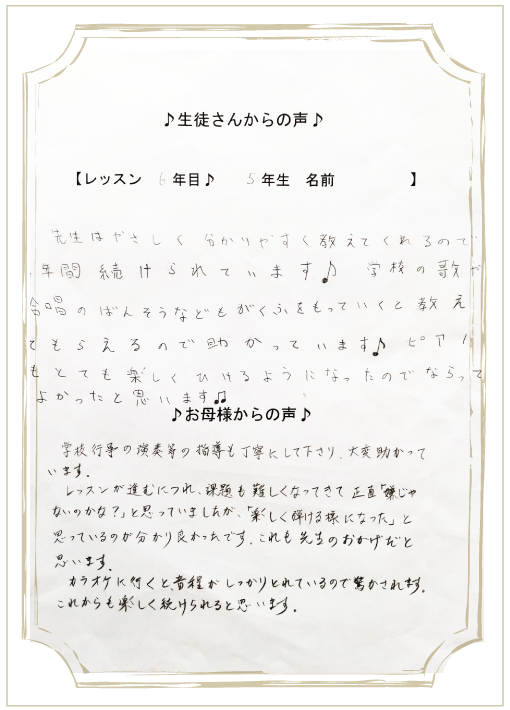 ♪生徒さんからの声♪
【レッスン 6 年目♪ 5 年生 名前 】
先生はやさしく分かりやすく教えてくれるので
年間続けられています♪ 学校の歌や
合唱のばんそうなどもがくふをもっていくと教え
てもらえるので助かっています♪ ピアノ
もとても楽しくひけるようになったのでならって
よかったと思います♫
♪お母様からの声♪
学校行事の演奏等の指導も丁寧にして下さり、大変助かって
います。
レッスンが進むにつれ、課題も難しくなってきて正直「嫌じゃ
ないのかな?」と思っていましたが、「楽しく弾ける様になった」と
思っているのが分かり良かったです。これも先生のおかげだと
思います。
カラオケに行くと、音程がしっかりとれているので驚かされます。
これからも楽しく続けられると思います。